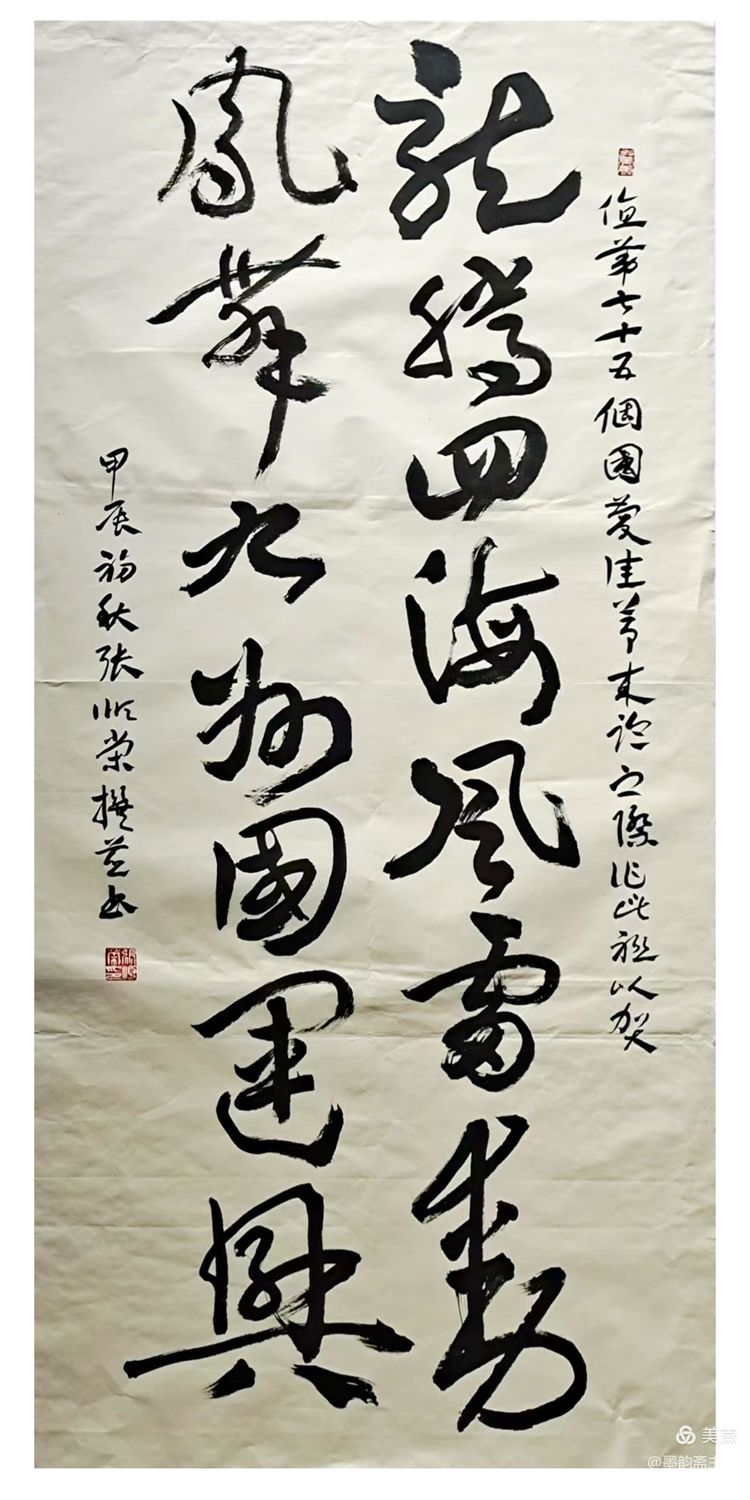 值第七十五個國慶佳節来臨之際作此聯以賀
龍騰四海風雷動
鳳舞九州國運興
甲辰初秋張順榮撰並書
美篇
@墨韵斋主